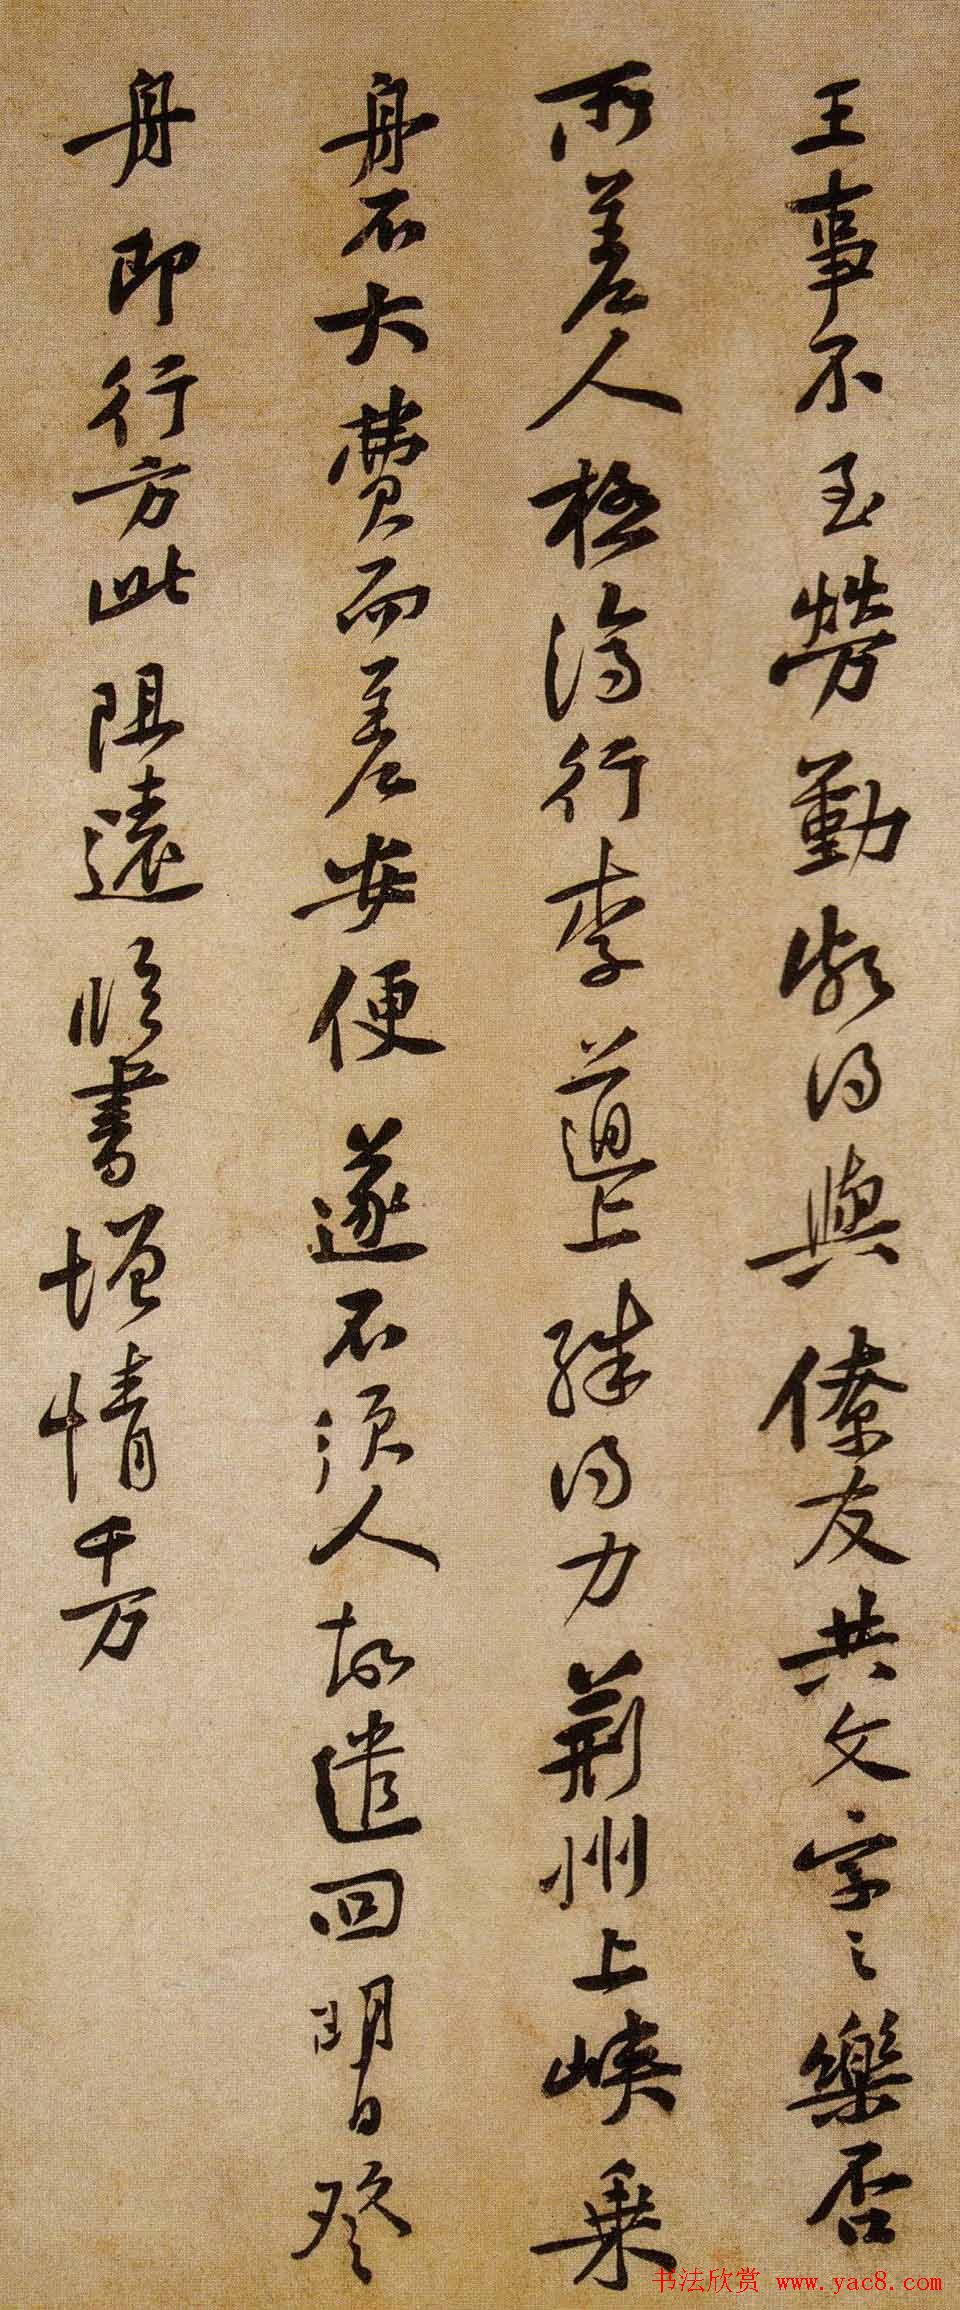 王事不至勞勤頗得與僚友共文字之樂否
所差人極濟行李道上殊得力荊州上峽乗
舟不大費而差安便遂不須人故遣回明日登
舟即行方此阻遠臨書增情千万
书法欣赏 www.yac8.com